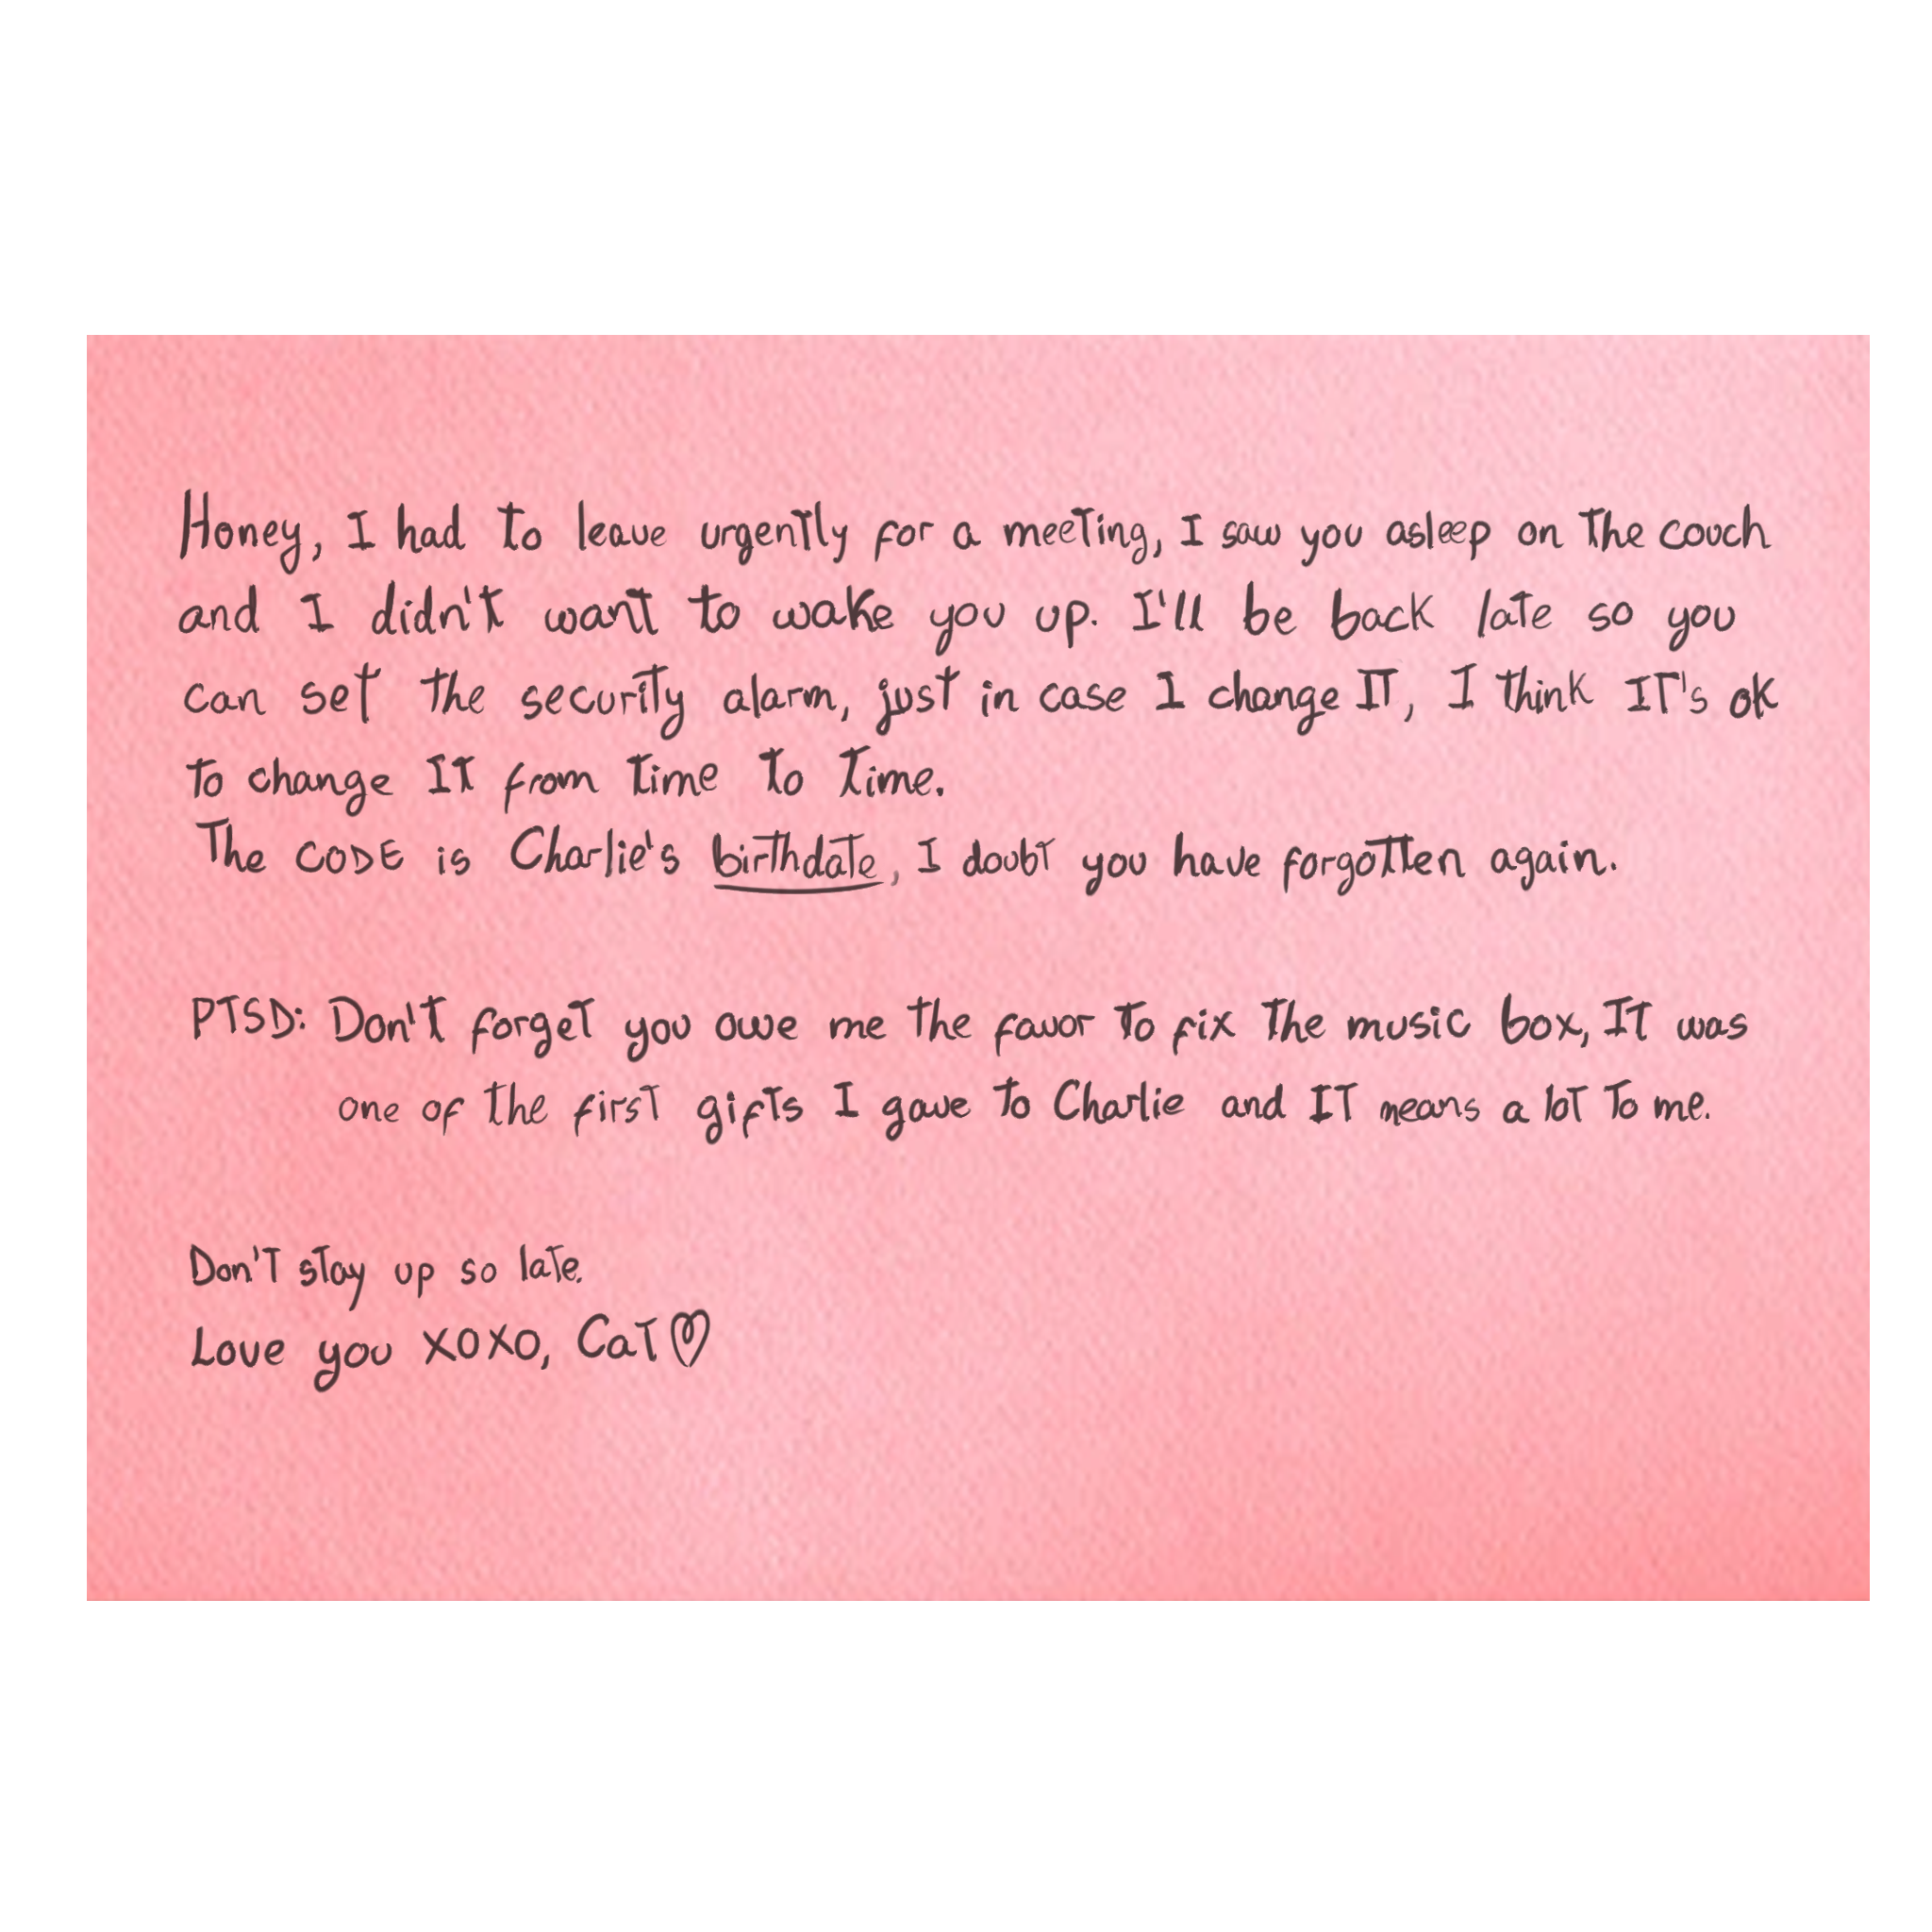 Honey, I had to leave urgently for a meeting, I saw you asleep on the couch
and I didn't want to wake you up. I'll be back late so you
can set the security alarm, just in case I change IT, I think IT's ok
to change IT from time to time.
The CODE is Charlie's birthdate, I doubt you have forgotten again.
PTSD: Don't forget you owe me the favor to fix the music box, IT was
one of the first gifts I gave to Charlie and IT means a lot to me.
Don't stay up so late.
Love you XOXO, Cat♡